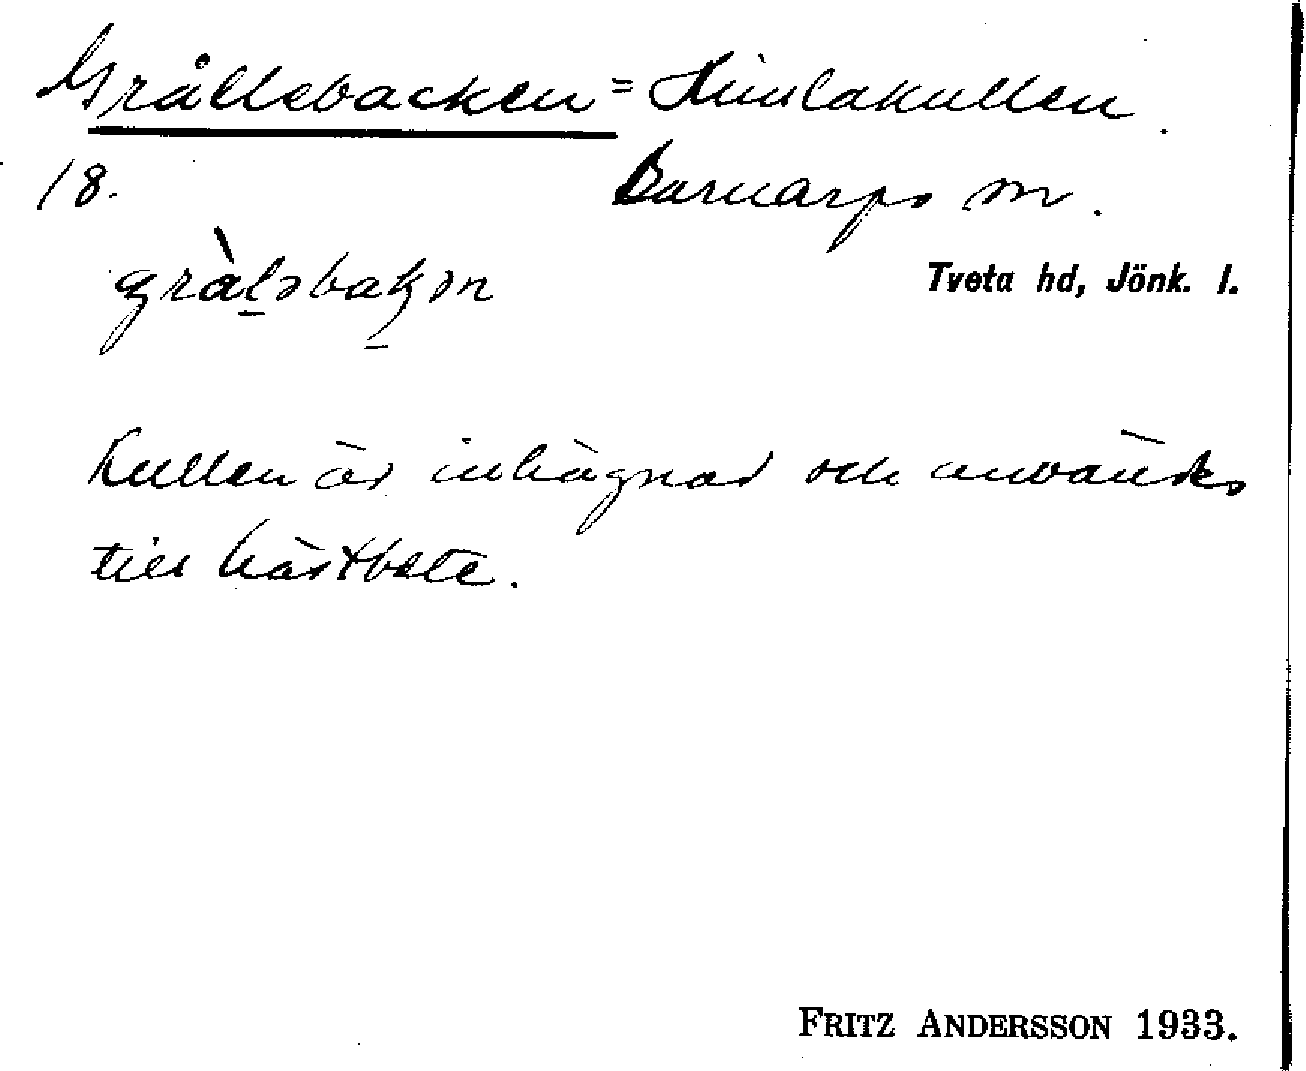 Grållebacken = Himlakullen.
18. Barnarps sn.
gràləbakən
Tveta hd, Jönk. l.
Kullen är inhägnad och används
till hästbete.
FRITZ ANDERSSON 1933.